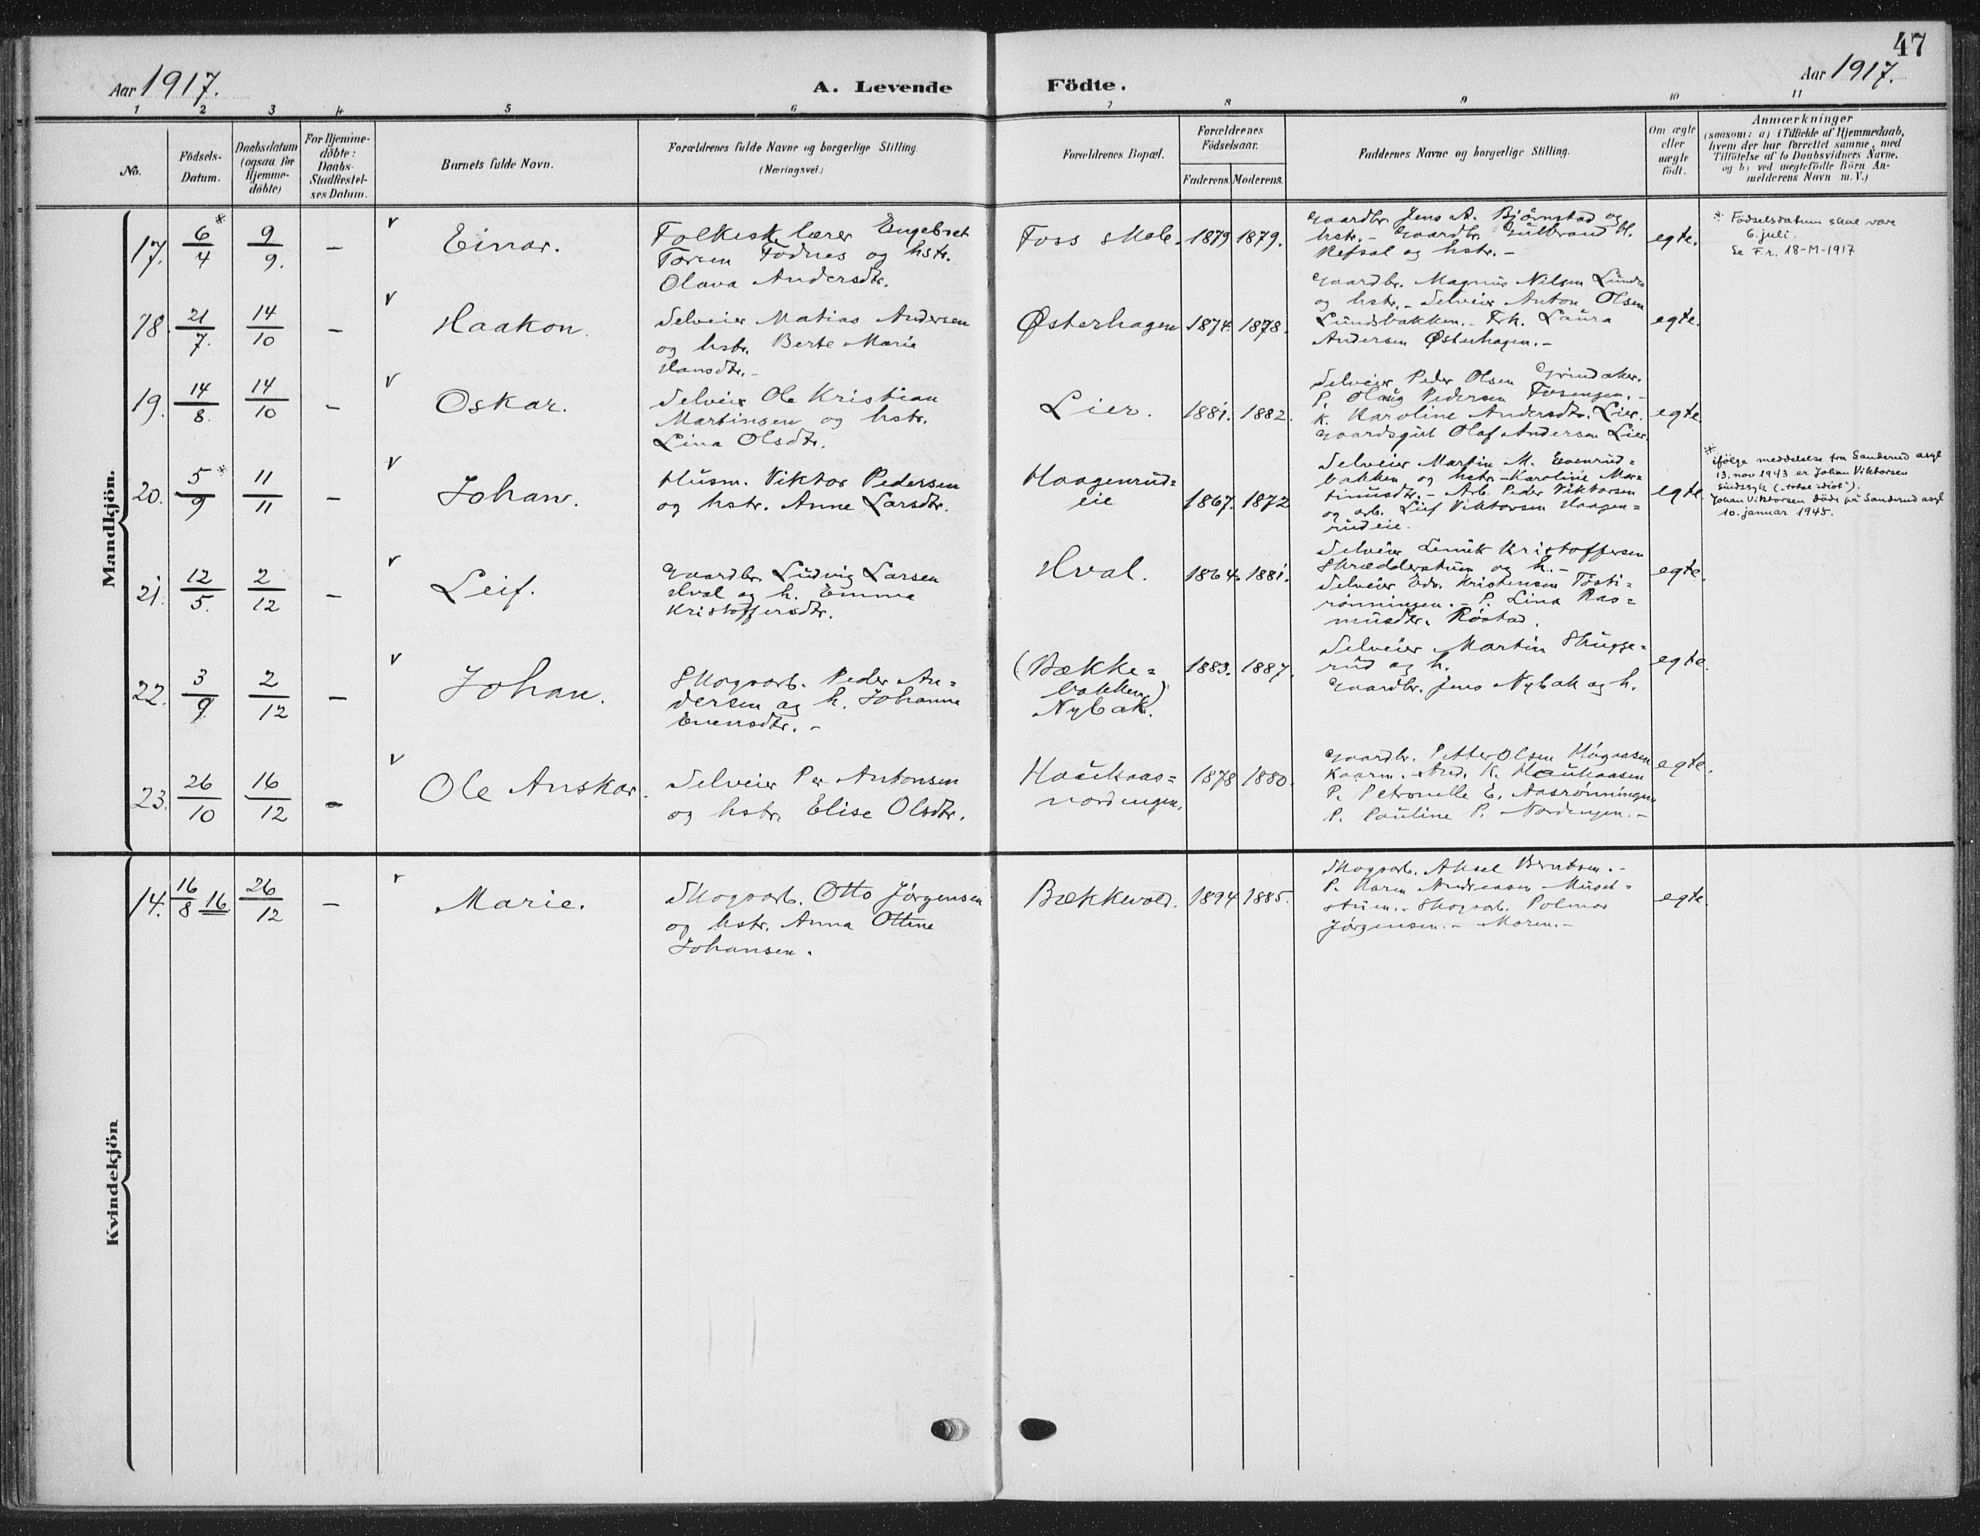 47
Aar 1917.
A. Levende Födte.
Aar 1917.
1 2 3 4 5 6 7 8 9 10 11
No.
Födsels-
Datum.
Daabsdatum
(ogsaa for
Hjemme-
döbte)
For Hjemme-
döbte:
Daabs-
Stadfæstel-
ses Datum.
Barnets fulde Navn.
Forældrenes fulde Navne og borgerlige Stilling.
(Næringsvei.)
Forældrenes Bopæl.
Forældrenes
Födselsaar.
Faderens. Moderens.
Faddernes Navne og borgerlige Stilling.
Om ægte
eller
uægte
födt.
Anmærkninger
(saasom: a) i Tilfælde af Hjemmedaab,
hvem der har forrettet samme, med
Tilföielse af to Daabsvidners Navne.
og b) ved uægtefödte Börn An-
melderens Navn m. V.)
Mandkjön.
17. 6/4 * 9/9. – v Einar.
Folkesk lærer Engebret
Torsen Fodnes og hstr.
Olava Andersdtr.
Foss skole. 1879 1879.
Gaardbr. Jens A. Bjørnstad og
hstr. – Gaardbr. Gulbrand H.
Refsal og hstr. –
egte.
* Fødselsdatum skal være
6. juli.
Se F.r. 18-M-1917
18. 21/7. 14/10 – v Haakon.
Selveier Matias Andersen
og hstr. Berte Marie
Hansdtr. –
Østerhagen 1874. 1878.
Gaardbr. Magnus Nilsen Lunds
og hstr. – Selveier Anton Olsen
Lundsbakken. Frk. Laura
Andersen Østerhagen. –
egte.
19. 14/8. 14/10 – v Oskar.
Selveier Ole Kristian
Martinsen og hstr.
Lina Olsdtr.
Lier. 1881. 1882.
Selveier Peder Olsen Grindaker.
P. Olaug Pedersen Fosengen. –
K. Karoline Andersdtr. Lier.
Gaardsgut Olaf Andersen Lier.
egte.
20. 5/9 * 11/11 – v Johan.
Husm. Viktor Pedersen
og hstr. Anne Larsdtr.
Haagenrud=
eie 1867. 1872
Selveier Martin M. Evenrud=
bakken og hstr. – Karoline Mar=
tinusdtr. – Arb. Peder Viktorsen
og arb. Leif Viktorsen Haagen=
rudeie.
egte
* ifølge meddelelse fra Sanderud asyl
13. nov 1943 er Johan Viktorsen
sindssyk ("total idiot").
Johan Viktorsen døde på Sanderud asyl
10. januar 1945.
21. 12/5. 2/12 – v Leif.
Gaardbr. Ludvig Larsen
Hval og h. Emma
Kristoffersdtr.
Hval. 1864. 1881.
Selveier Kristoffersen
Skrædderstuen og h. –
Selveier Edv. Kristensen Tosti=
rønningen. – P. Lina Ras=
musdtr. Røstad.
egte.
22. 3/9. 2/12 – v Johan.
Skogsarb. Peder An=
dersen og h. Johanne
Evensdtr. –
(Bække=
bakken)
Nybak. 1883. 1887.
Selveier Martin Skugge=
rud og h.
Gaardbr. Jens Nybak og h.
egte.
23. 26/10 16/12 – v Ole Anskar.
Selveier Per Antonsen
og hstr. Elise Olsdtr.
Haukaas=
nordengen. 1878 1880.
Gaardbr. Petter Olsen Høgaasen
Kaarm. And. K. Haukaasen
P. Petronelle E. Aasrønningen
P. Pauline P. Nordengen. –
egte.
Kvindekjön
14. 16/8 16 26/12 – v Marie.
Skogsarb. Otto Jørgensen
og hstr. Anna Ottine
Johansen.
Bækkevold. 1894 1885.
Skogsarb. Aksel Berntsen. –
P. Karen Andreasen Muset=
stuen. – Skogsarb. Palmar
Jørgensen. – Moren. –
egte.